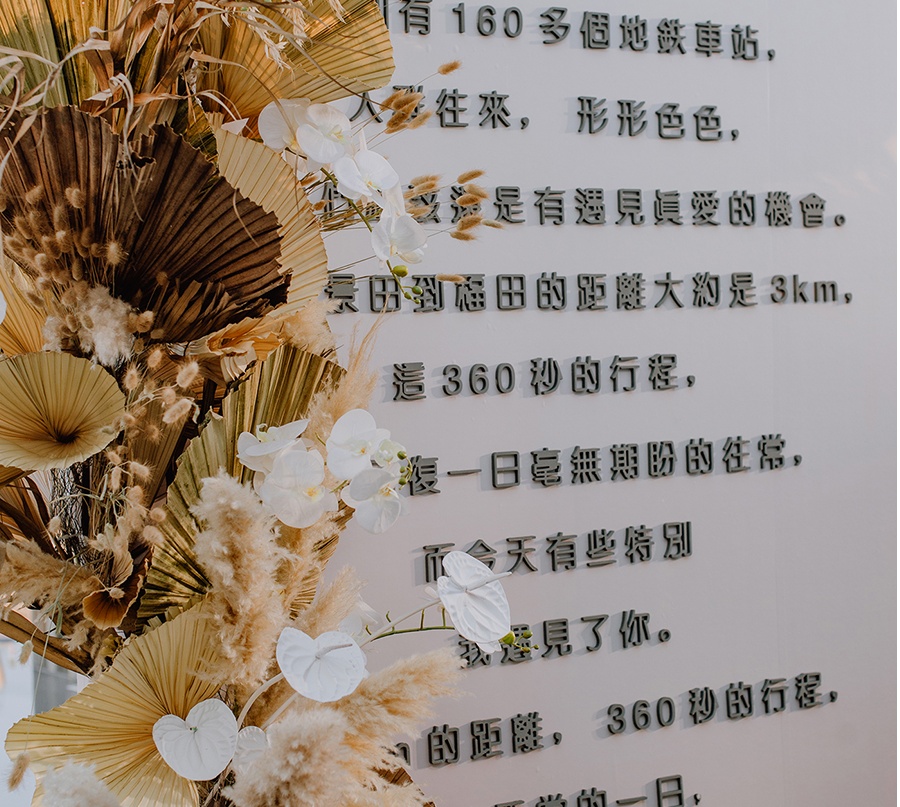 有 160 多個地鉄車站,
往來, 形形色色,
是有遇見眞愛的機會。
田到福田的距離大約是 3km,
這 360 秒的行程,
復一日毫無期盼的往常,
而今天有些特別
我遇見了你。
的距離, 360 秒的行程,
常的一日,